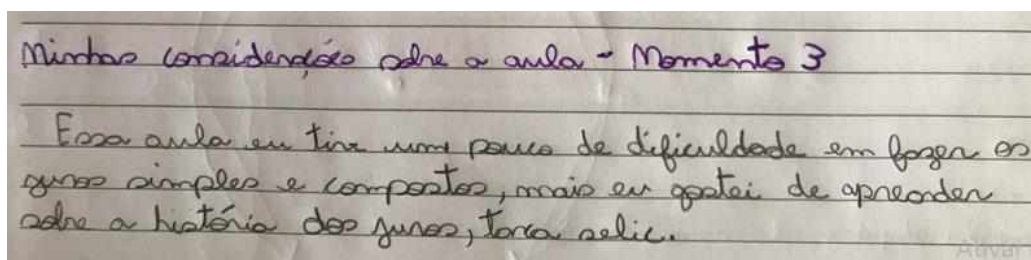 Minhas considerações sobre a aula - Momento 3
Essa aula eu tive um pouco de dificuldade em fazer os
juros simples e compostos, mais eu gostei de aprender
sobre a história dos juros, taxa selic.
Ativar